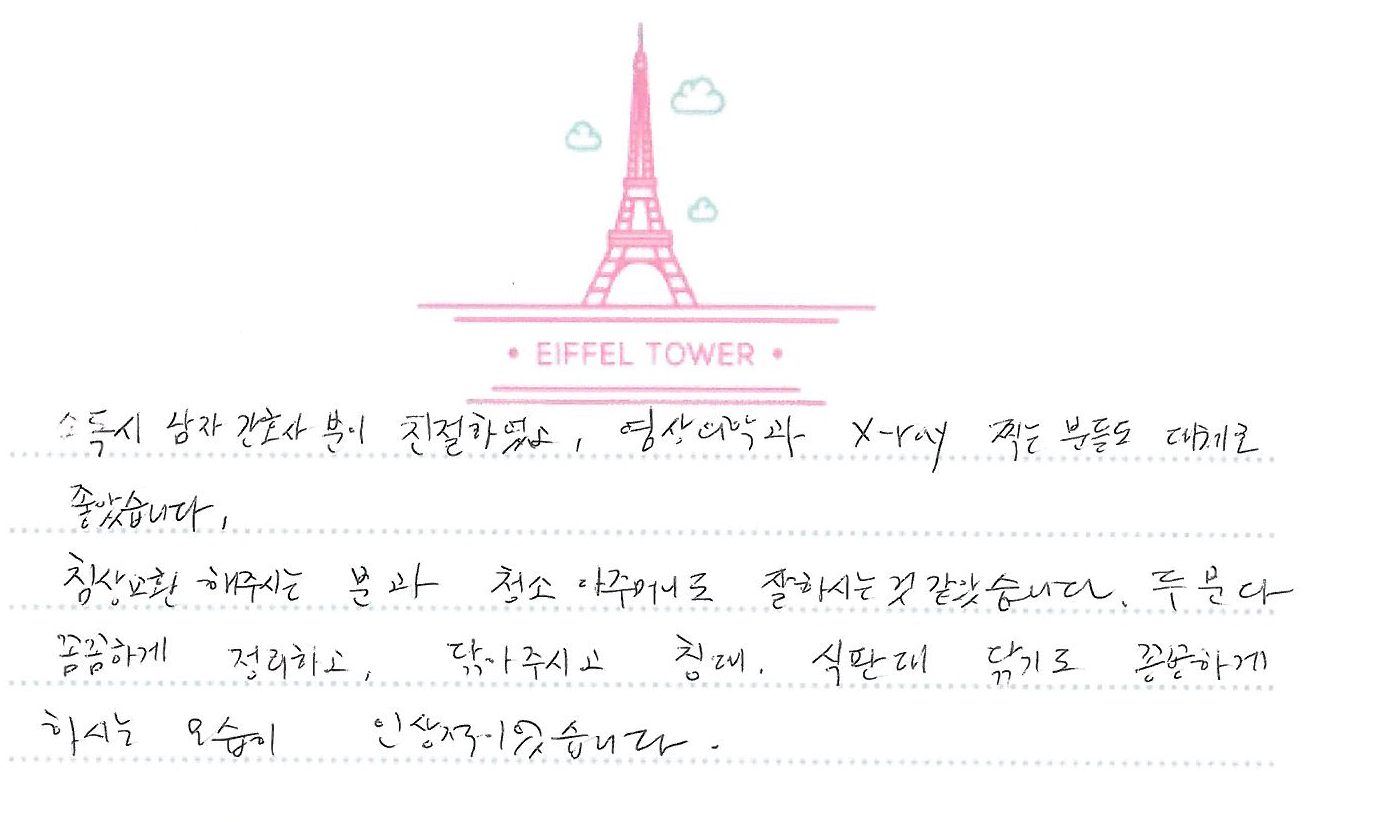 EIFFEL TOWER
소독시 남자 간호사 분이 친절하였고, 영상의학과 X-ray 찍는 분들도 대체로
좋았습니다,
침상교환 해주시는 분과 청소 아주머니도 잘하시는것 같았습니다. 두 분 다
꼼꼼하게 정리하고, 닦아주시고 침대. 식판대 닦기도 꼼꼼하게
하시는 모습이 인상적이었습니다.